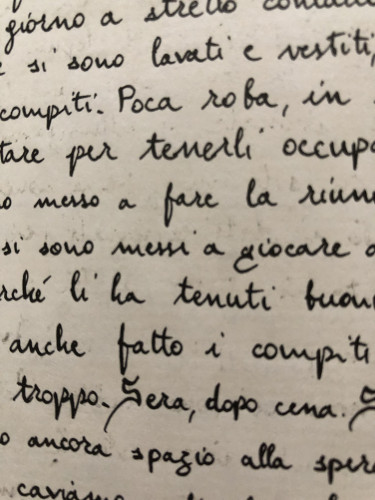 giorno a stretto
si sono lavati e vestiti,
compiti. Poca roba, in
per tenerli
messo a fare la
si sono messi a giocare
li ha tenuti
anche fatto i compiti
troppo. Sera, dopo cena.
ancora spazio alla